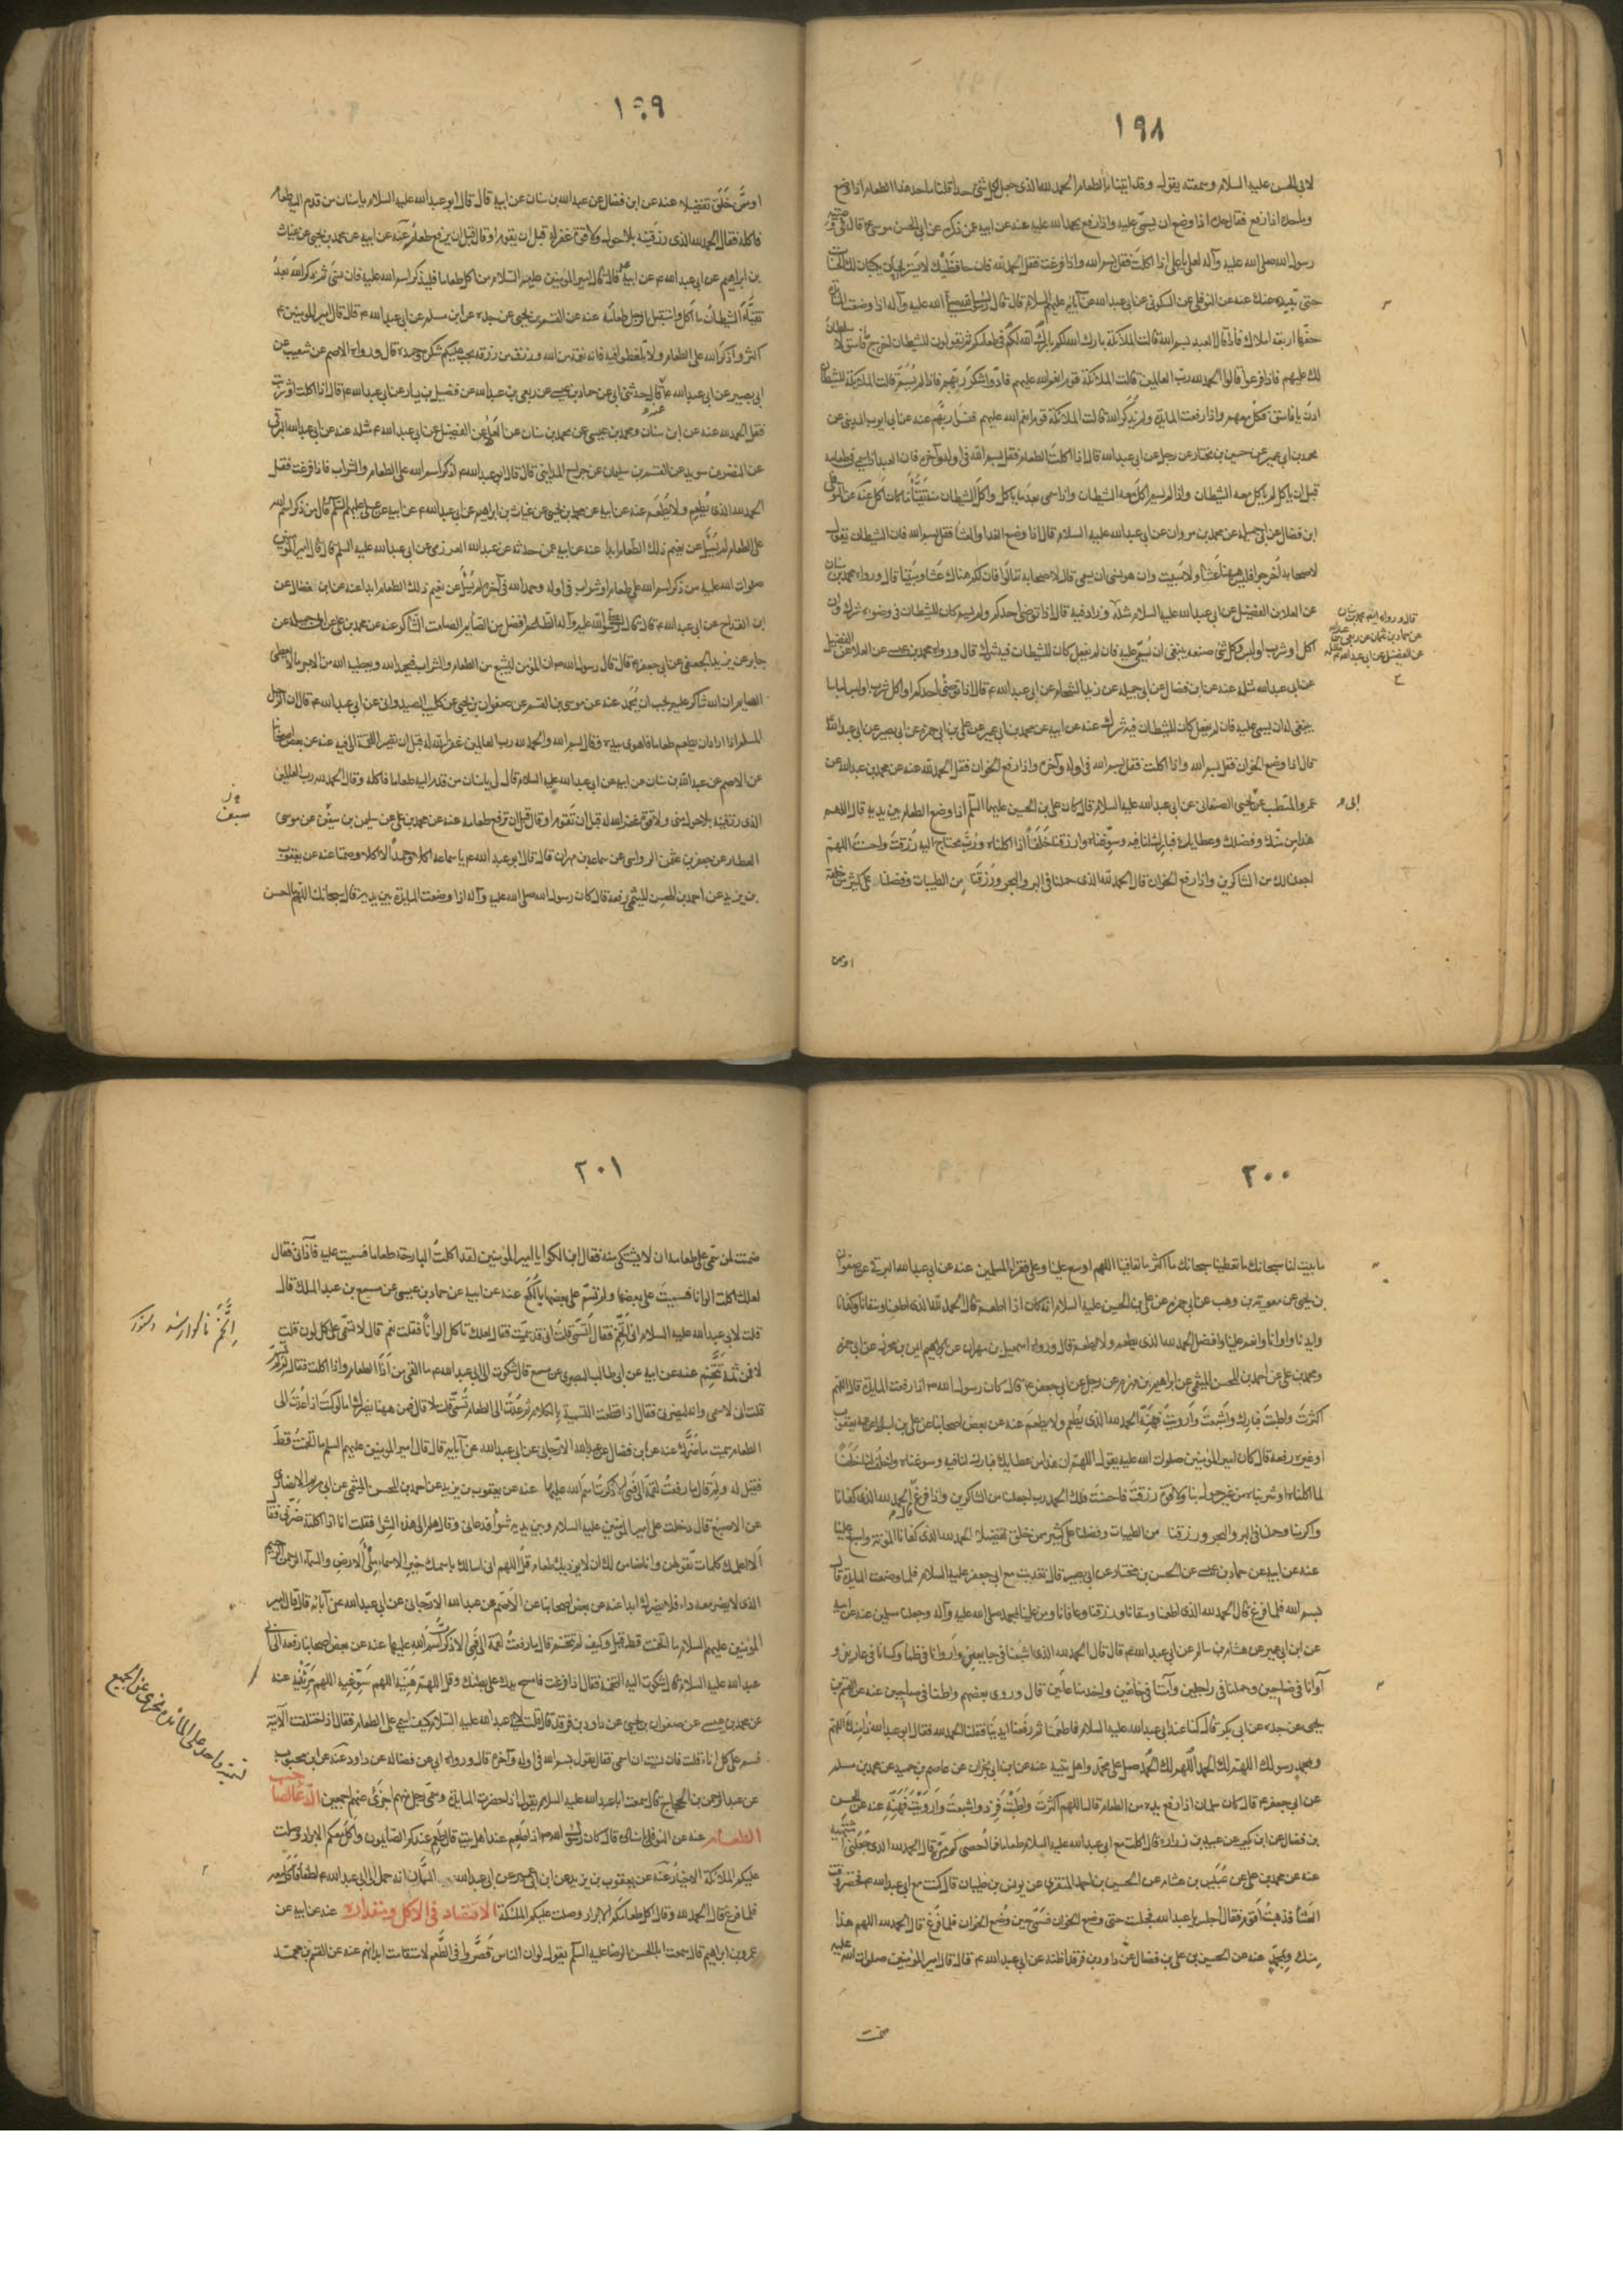 ١٩٨
لابي الحسن عليه السلام وسمعته يقول وقد اتينا بالطعام الحمد لله الذى جعل لكل شئ حدا قلنا ما حد هذا الطعام اذا وضع
وما حده اذا رفع فقال حده اذا وضع ان يسمى عليه واذا رفع يحمد الله عليه عنه عن ابيه عمن ذكره عن ابى الحسن موسى ع قال فى وصية
رسول الله صلى الله عليه وآله لعلى يا على اذا اكلت فقل بسم الله واذا فرغت فقل الحمد لله فان حافظيك لا يستريحان يكتبان لك الحسنات
حتى تبعده عنك عنه عن النوفلى عن السكونى عن ابى عبد الله عن آبائه عليهم السلام قال قال رسول الله صلى الله عليه وآله اذا وضعت المائدة
حفها اربعة املاك فاذا قال العبد بسم الله قالت الملائكة بارك الله لكم فى طعامكم ثم يقولون للشيطان اخرج يا فاسق لا سلطان
لك عليهم فاذا فرغوا قالوا الحمد لله رب العالمين قالت الملائكة قوم انعم الله عليهم فادوا شكر ربهم فاذا لم يسم قالت الملائكة للشيطان
ادن يا فاسق فكل معهم واذا رفعت المائدة ولم يذكر الله قالت الملائكة قوم انعم الله عليهم فنسوا ربهم عنه عن ابى ايوب المدينى عن
محمد بن ابى عمير عن حسين بن مختار عن رجل عن ابى عبد الله قال اذا اكلت الطعام فقل بسم الله فى اوله وآخره فان العبد اذا سمى فى طعامه
قبل ان ياكل لم ياكل معه الشيطان واذا لم يسم اكل معه الشيطان واذا سمى بعد ما ياكل واكل الشيطان منه تقيأ ما كان اكل عنه عن
ابن فضال عن ابى جميلة عن محمد بن مروان عن ابى عبد الله عليه السلام قال اذا وضع الغدا والعشا فقل بسم الله فان الشيطان يقول
لاصحابه اخرجوا فليس هيهنا عشا ولا مبيت وان هو نسى ان يسمى قال لاصحابه تعالوا فان لكم هناك عشا ومبيتا قال ورواه محمد بن سنان
عن العلا بن الفضيل عن ابى عبد الله عليه السلام مثله وزاد فيه قال اذا توضى احدكم ولم يسم كان للشيطان فى وضوئه شرك وان
اكل او شرب او لبس وكل شئ صنعه ينبغى ان يسمى عليه فان لم يفعل كان للشيطان فيه شرك قال ورواه محمد بن عيسى عن العلا عن الفضيل
عن ابى عبد الله مثله عنه عن ابن فضال عن ابى جميلة عن زيد الشحام عن ابى عبد الله ع قال اذا توضى احدكم او اكل او شرب او لبس لباسا
ينبغى له ان يسمى عليه فان لم يفعل كان للشيطان فيه شرك عنه عن ابيه عن محمد بن ابى عمير عن على بن ابى حمزة عن ابى بصير عن ابى عبد الله
قال اذا وضع الخوان فقل بسم الله واذا اكلت فقل بسم الله فى اوله وآخره واذا رفع الخوان فقل الحمد لله عنه عن محمد بن عبد الله عن
عمرو المتطبب عن ابى يحيى الصنعانى عن ابى عبد الله عليه السلام قال كان على بن الحسين عليهما السلام اذا وضع الطعام بين يديه قال اللهم
هذا من منك وفضلك وعطاياك فبارك لنا فيه وسوغناه وارزقنا خلفا اذا اكلناه ورب محتاج اليه رزقت واحسنت اللهم
اجعلنا لك من الشاكرين واذا رفع الخوان قال الحمد لله الذى حملنا فى البر والبحر ورزقنا من الطيبات وفضلنا على كثير من خلقه
قال ورواه ايضا محمد بن سنان
عن حماد بن عثمان عن ربعى بن عبد الله
عن الفضيل عن ابى عبد الله مثله
ابى
او من
١٩٩
او ممن خلق تفضيلا عنه عن ابن فضال عن عبد الله بن سنان عن ابيه قال قال ابو عبد الله عليه السلام يا سنان من قدم اليه طعام
فاكله فقال الحمد لله الذى رزقنيه بلا حول ولا قوة غفر له قبل ان يقوم او قال قبل ان يرفع طعامه عنه عن ابيه عن محمد بن يحيى عن غياث
بن ابراهيم عن ابى عبد الله ع عن ابيه قال قال امير المؤمنين عليه السلام من اكل طعاما فليذكر اسم الله عليه فان نسى ثم ذكر الله بعد
تقيأ الشيطان ما اكل واستقبل الرجل طعامه عنه عن القسم بن يحيى عن جده عن ابن مسلم عن ابى عبد الله ع قال قال امير المؤمنين ع
اكثروا ذكر الله على الطعام ولا تلغطوا فيه فانه نعمة من الله ورزق من رزقه يجب عليكم شكره وحمده قال ورواه الاصم عن شعيب عن
ابى بصير عن ابى عبد الله ع قال حدثنى ابى عن حماد بن عيسى عن ربعى بن عبد الله عن فضيل بن يسار عن ابى عبد الله ع قال اذا اكلت او شربت
فقل الحمد لله عنه عن ابن سنان ومحمد بن عيسى عن محمد بن سنان عن العلا عن الفضيل عن ابى عبد الله ع مثله عنه عن ابى عبد الله البرقى
عن النضر بن سويد عن القسم بن سليمان عن جراح المداينى قال قال ابو عبد الله ع اذكر اسم الله على الطعام والشراب فاذا فرغت فقل
الحمد لله الذى يطعم ولا يطعم عنه عن ابيه عن محمد بن يحيى عن غياث بن ابراهيم عن ابى عبد الله ع عن ابيه عن على عليهم السلام قال من ذكر اسم الله
على الطعام لم يسئل عن نعيم ذلك الطعام ابدا عنه عن ابيه عمن حدثه عن عبد الله العرزمى عن ابى عبد الله عليه السلام قال قال امير المؤمنين
صلوات الله عليه من ذكر اسم الله على طعام او شراب فى اوله وحمد الله فى آخره لم يسئل عن نعيم ذلك الطعام ابدا عنه عن ابن فضال عن
ابن القداح عن ابى عبد الله ع قال قال رسول الله صلى الله عليه وآله الطاعم الشاكر افضل من الصائم الصامت عنه عن محمد بن على عن ابى جميلة عن
جابر بن يزيد الجعفى عن ابى جعفر ع قال قال رسول الله ص ان المؤمن ليشبع من الطعام والشراب فيحمد الله ويعطيه الله من الاجر ما لا يعطى
الصايم ان الله شاكر عليم يحب ان يحمد عنه عن موسى بن القسم عن صفوان بن يحيى عن كليب الصيداوى عن ابى عبد الله ع قال ان الرجل
المسلم اذا اراد ان يطعم طعاما فاهوى بيده وقال بسم الله والحمد لله رب العالمين غفر الله له قبل ان تصير اللقمة الى فيه عنه عن بعض اصحابنا
عن الاصم عن عبد الله بن سنان عن ابيه عن ابى عبد الله عليه السلام قال لى يا سنان من قدم اليه طعاما فاكله وقال الحمد لله رب العالمين
الذى رزقنيه بلا حول منى ولا قوة غفر الله له قبل ان تقوم او قال قبل ان ترفع طعامه عنه عن محمد بن على عن سليمن بن سفين عن موسى
العطار عن جعفر بن عثمن الرواسى عن سماعة بن مهران قال قال ابو عبد الله ع يا سماعة اكلا وحمدا لا اكلا وصمتا عنه عن يعقوب
بن يزيد عن احمد بن الحسن الميثمى رفعه قال كان رسول الله صلى الله عليه وآله اذا وضعت المائدة بين يديه قال سبحانك اللهم ما احسن
٢٠٠
ما تبتلينا سبحانك ما تعطينا سبحانك ما اكثر ما تعافينا اللهم اوسع علينا وعلى فقراء المسلمين عنه عن ابى عبد الله البرقى عن صفوان
بن يحيى عن معوية بن وهب عن ابى حمزه عن على بن الحسين عليه السلام انه كان اذا طعم قال الحمد لله الذى اطعمنا وسقانا وكفانا
وايدنا وآوانا وانعم علينا وافضل الحمد لله الذى يطعم ولا يطعم قال ورواه اسمعيل بن مهران عن ايمن بن محرز عن ابى حمزه
ومحمد بن على عن احمد بن الحسن الميثمى عن ابراهيم بن مهزم عن رجل عن ابى جعفر ع قال كان رسول الله ص اذا رفعت المائدة قال اللهم
اكثرت واطبت فبارك واشبعت وارويت فهنئه الحمد لله الذى يطعم ولا يطعم عنه عن بعض اصحابنا عن على بن اسباط عن عمه يعقوب
او غيره رفعه قال كان امير المؤمنين صلوات الله عليه يقول اللهم ان هذا من عطائك فبارك لنا فيه وسوغناه واخلف لنا خلفا
لما اكلناه او شربناه من غير حول منا ولا قوة رزقت فاحسنت فلك الحمد رب اجعلنا من الشاكرين واذا فرغ قال الحمد لله الذى كفانا
واكرمنا وحملنا فى البر والبحر ورزقنا من الطيبات وفضلنا على كثير من خلق تفضيلا الحمد لله الذى كفانا المؤنة واسبغ علينا
عنه عن ابيه عن حماد بن عيسى عن الحسين بن مختار عن ابى بصير قال تغديت مع ابى جعفر عليه السلام فلما وضعت المائدة قال
بسم الله فلما فرغ قال الحمد لله الذى اطعمنا وسقانا ورزقنا وعافانا ومن علينا بمحمد صلى الله عليه وآله وجعلنا مسلمين عنه عن ابيه
عن ابن ابى عمير عن هشام بن سالم عن ابى عبد الله ع قال قال الحمد لله الذى اشبعنا فى جايعين واروانا فى ظمآ وكسانا فى عارين و
آوانا فى ضاحين وحملنا فى راجلين وآمننا فى خائفين واخدمنا عانين قال وروى بعضهم واظلنا فى ضاحين عنه عن القسم بن
يحيى عن جده عن ابى بكر قال كنا عند ابى عبد الله عليه السلام فاطعمنا ثم رفعنا ايدينا فقلنا الحمد لله فقال ابو عبد الله ع هذا منك اللهم
وبمحمد رسولك اللهم لك الحمد اللهم لك الحمد صل على محمد واهل بيته عنه عن ابن ابى نجران عن عاصم بن حميد عن محمد بن مسلم
عن ابى جعفر ع قال كان سلمان اذا رفع يده من الطعام قال اللهم اكثرت واطبت فزد واشبعت وارويت فهنئه عنه عن الحسن
بن فضال عن ابن بكير عن عبيد بن زرارة قال اكلت مع ابى عبد الله عليه السلام طعاما فما احصى كم مرة قال الحمد لله الذى جعلنى اشتهيه
عنه عن محمد بن على عن عبيس بن هشام عن الحسين بن احمد المنقرى عن يونس بن ظبيان قال كنت مع ابى عبد الله ع فحضر وقت
العشا فذهبت اقوم فقال اجلس يا عبد الله فجلست حتى وضع الخوان فسمى حين وضع الخوان فلما فرغ قال الحمد لله اللهم هذا
منك وبمحمد عنه عن الحسين بن على بن فضال عن داود بن فرقد اظنه عن ابى عبد الله ع قال قال امير المؤمنين صلوات الله عليه
ضمنت
٢٠١
ضمنت لمن سمى على طعامه ان لا يشتكى منه فقال ابن الكوا يا امير المؤمنين لقد اكلت البارحة طعاما فسميت عليه فآذانى فقال
لعلك اكلت الوانا فسميت على بعضها ولم تسم على بعضها يا لكع عنه عن ابيه عن حماد بن عيسى عن مسمع بن عبد الملك قال
قلت لابى عبد الله عليه السلام انى اتخم فقال اتسمى قلت انى قد سميت فقال لعلك تاكل الوانا فقلت نعم قال لا تسمى على كل لون قلت
لا فمن ثمة تتخم عنه عن ابيه عن ابى طالب البصرى عن مسمع قال شكوت الى ابى عبد الله ع ما القى من اذا الطعام واذا اكلت فقال لم لم تسم
قلت انى لاسمى وانه ليضرنى فقال اذا قطعت التسمية بالكلام ثم عدت الى الطعام تسمى قلت لا قال فمن ههنا يضرك اما لو كنت اذا عدت الى
الطعام سميت ما ضرك عنه عن ابن فضال عن عبد الله الارجانى عن ابى عبد الله عن آبائه قال قال امير المؤمنين عليهم السلام ما اتخمت قط
فقيل له ولم قال ما رفعت لقمة الى فمى الا ذكرت اسم الله عليها عنه عن يعقوب بن يزيد عن احمد بن الحسن الميثمى عن ابى مريم الانصارى
عن الاصبغ قال دخلت على امير المؤمنين عليه السلام وبين يديه شوا فدعانى وقال هلم الى هذا الشوا فقلت انا اذا اكلته ضرنى فقال
الا اعلمك كلمات تقولهن وانا ضامن لك ان لا يؤذيك طعام قل اللهم انى اسالك باسمك خير الاسماء ملأ الارض والسماء الرحمن الرحيم
الذى لا يضر معه داء فلا يضرك ابدا عنه عن بعض اصحابنا عن الاصم عن عبد الله الارجانى عن ابى عبد الله عن آبائه قال قال امير
المؤمنين عليهم السلام ما اتخمت قط قيل وكيف لم تتخم قال ما رفعت لقمة الى فمى الا ذكرت اسم الله عليها عنه عن بعض اصحابنا رفعه الى ابى
عبد الله عليه السلام قال شكوت اليه التخمة فقال اذا فرغت فامسح يدك على بطنك وقل اللهم هنئنيه اللهم سوغنيه اللهم مرئنيه عنه
عن محمد بن عيسى عن صفوان بن يحيى عن داود بن فرقد قال قلت لابى عبد الله عليه السلام كيف اسمى على الطعام فقال اذا اختلفت الآنية
فسم على كل اناء قلت فان نسيت ان اسمى فقال يقول بسم الله فى اوله وآخره قال ورواه ابى عن فضالة عن داود عنه عن ابن محبوب
عن عبد الرحمن بن الحجاج قال سمعت ابا عبد الله عليه السلام يقول اذا حضرت المائدة وسمى رجل منهم اجزئ عنهم اجمعين الدعا لصاحب
الطعام عنه عن النوفلى باسناده قال كان رسول الله ص اذا طعم عند اهل بيت قال طعم عندكم الصايمون واكل معكم الابرار وصلت
عليكم الملائكة الاخيار عنه عن يعقوب بن يزيد عن ابن ابى عمير عن ابى عبد الله السمان انه حمل الى ابى عبد الله ع لطفا فاكل معه
فلما فرغ قال الحمد لله وقال اكل طعامكم الابرار وصلت عليكم الملئكة الاقتصاد فى الاكل ومقداره عنه عن ابيه عن
عمرو بن ابراهيم قال سمعت ابا الحسن الرضا عليه السلام يقول لو ان الناس قصدوا فى الطعم لاستقامت ابدانهم عنه عن القسم بن محمد
تسمية واحد على المائدة يجزى عن الجميع